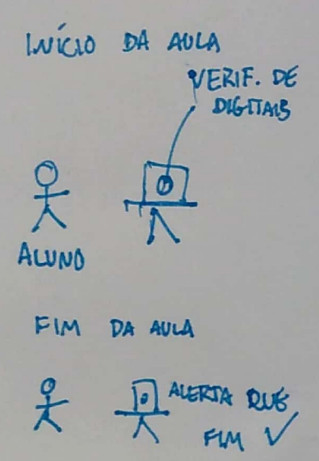 INÍCIO DA AULA
VERIF. DE
DIGITAIS
ALUNO
FIM DA AULA
ALERTA QUE
FIM ✓